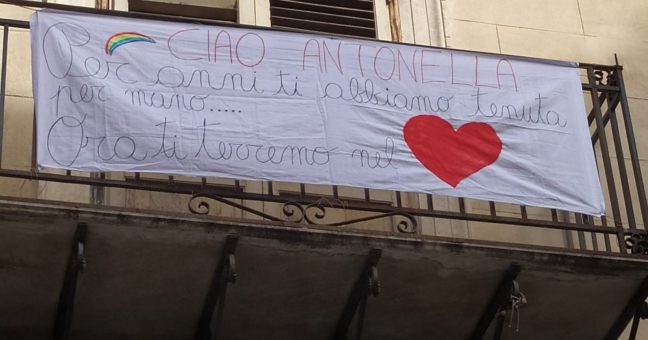 CIAO ANTONELLA
Per anni ti abbiamo tenuta
per mano.....
Ora ti terremo nel